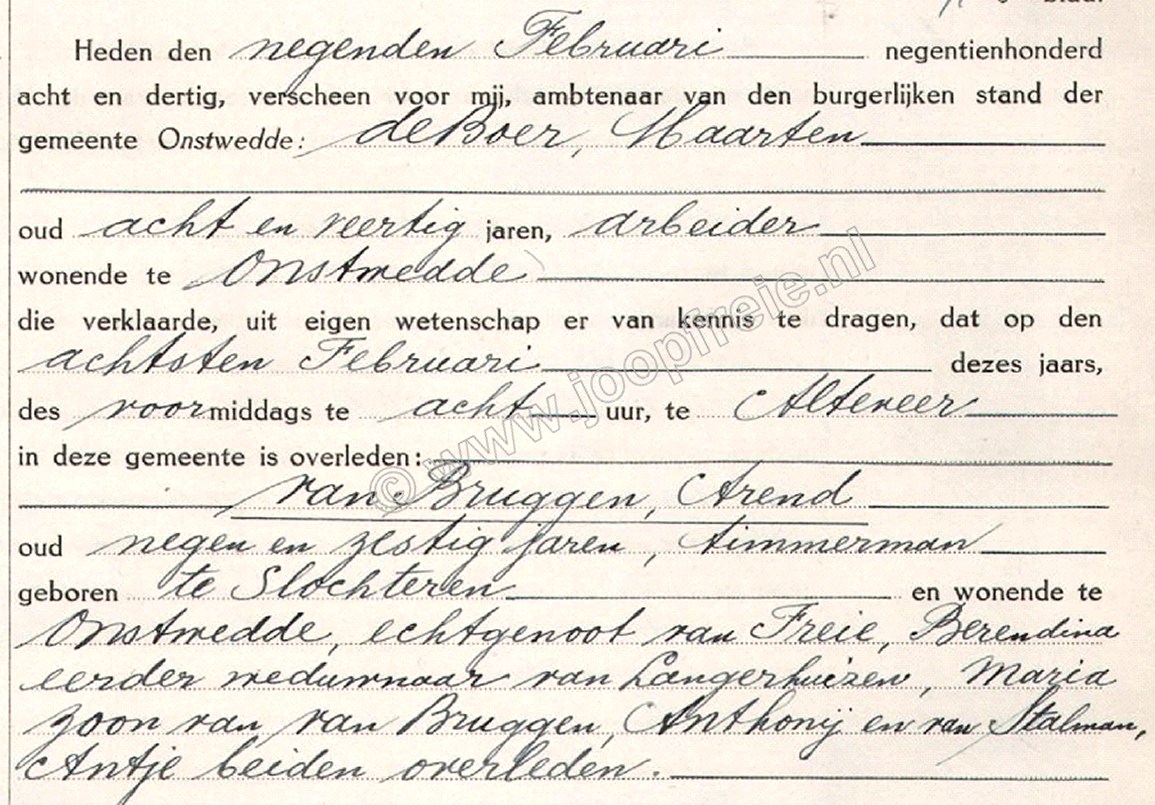 blad.
Heden den negenden Februari negentienhonderd
acht en dertig, verscheen voor mij, ambtenaar van den burgerlijken stand der
gemeente Onstwedde: de Boer, Maarten
oud acht en veertig jaren, arbeider
wonende te Onstwedde
die verklaarde, uit eigen wetenschap er van kennis te dragen, dat op den
achtsten Februari dezes jaars,
des voormiddags te acht uur, te Alteveer
in deze gemeente is overleden:
van Bruggen, Arend
oud negen en zestig jaren, timmerman
geboren te Slochteren en wonende te
Onstwedde, echtgenoot van Freie, Berendina
eerder weduwnaar van Langerhuizen, Maria
zoon van van Bruggen, Anthonij en van Stalman,
Antje beiden overleden.
© www.joopfreie.nl